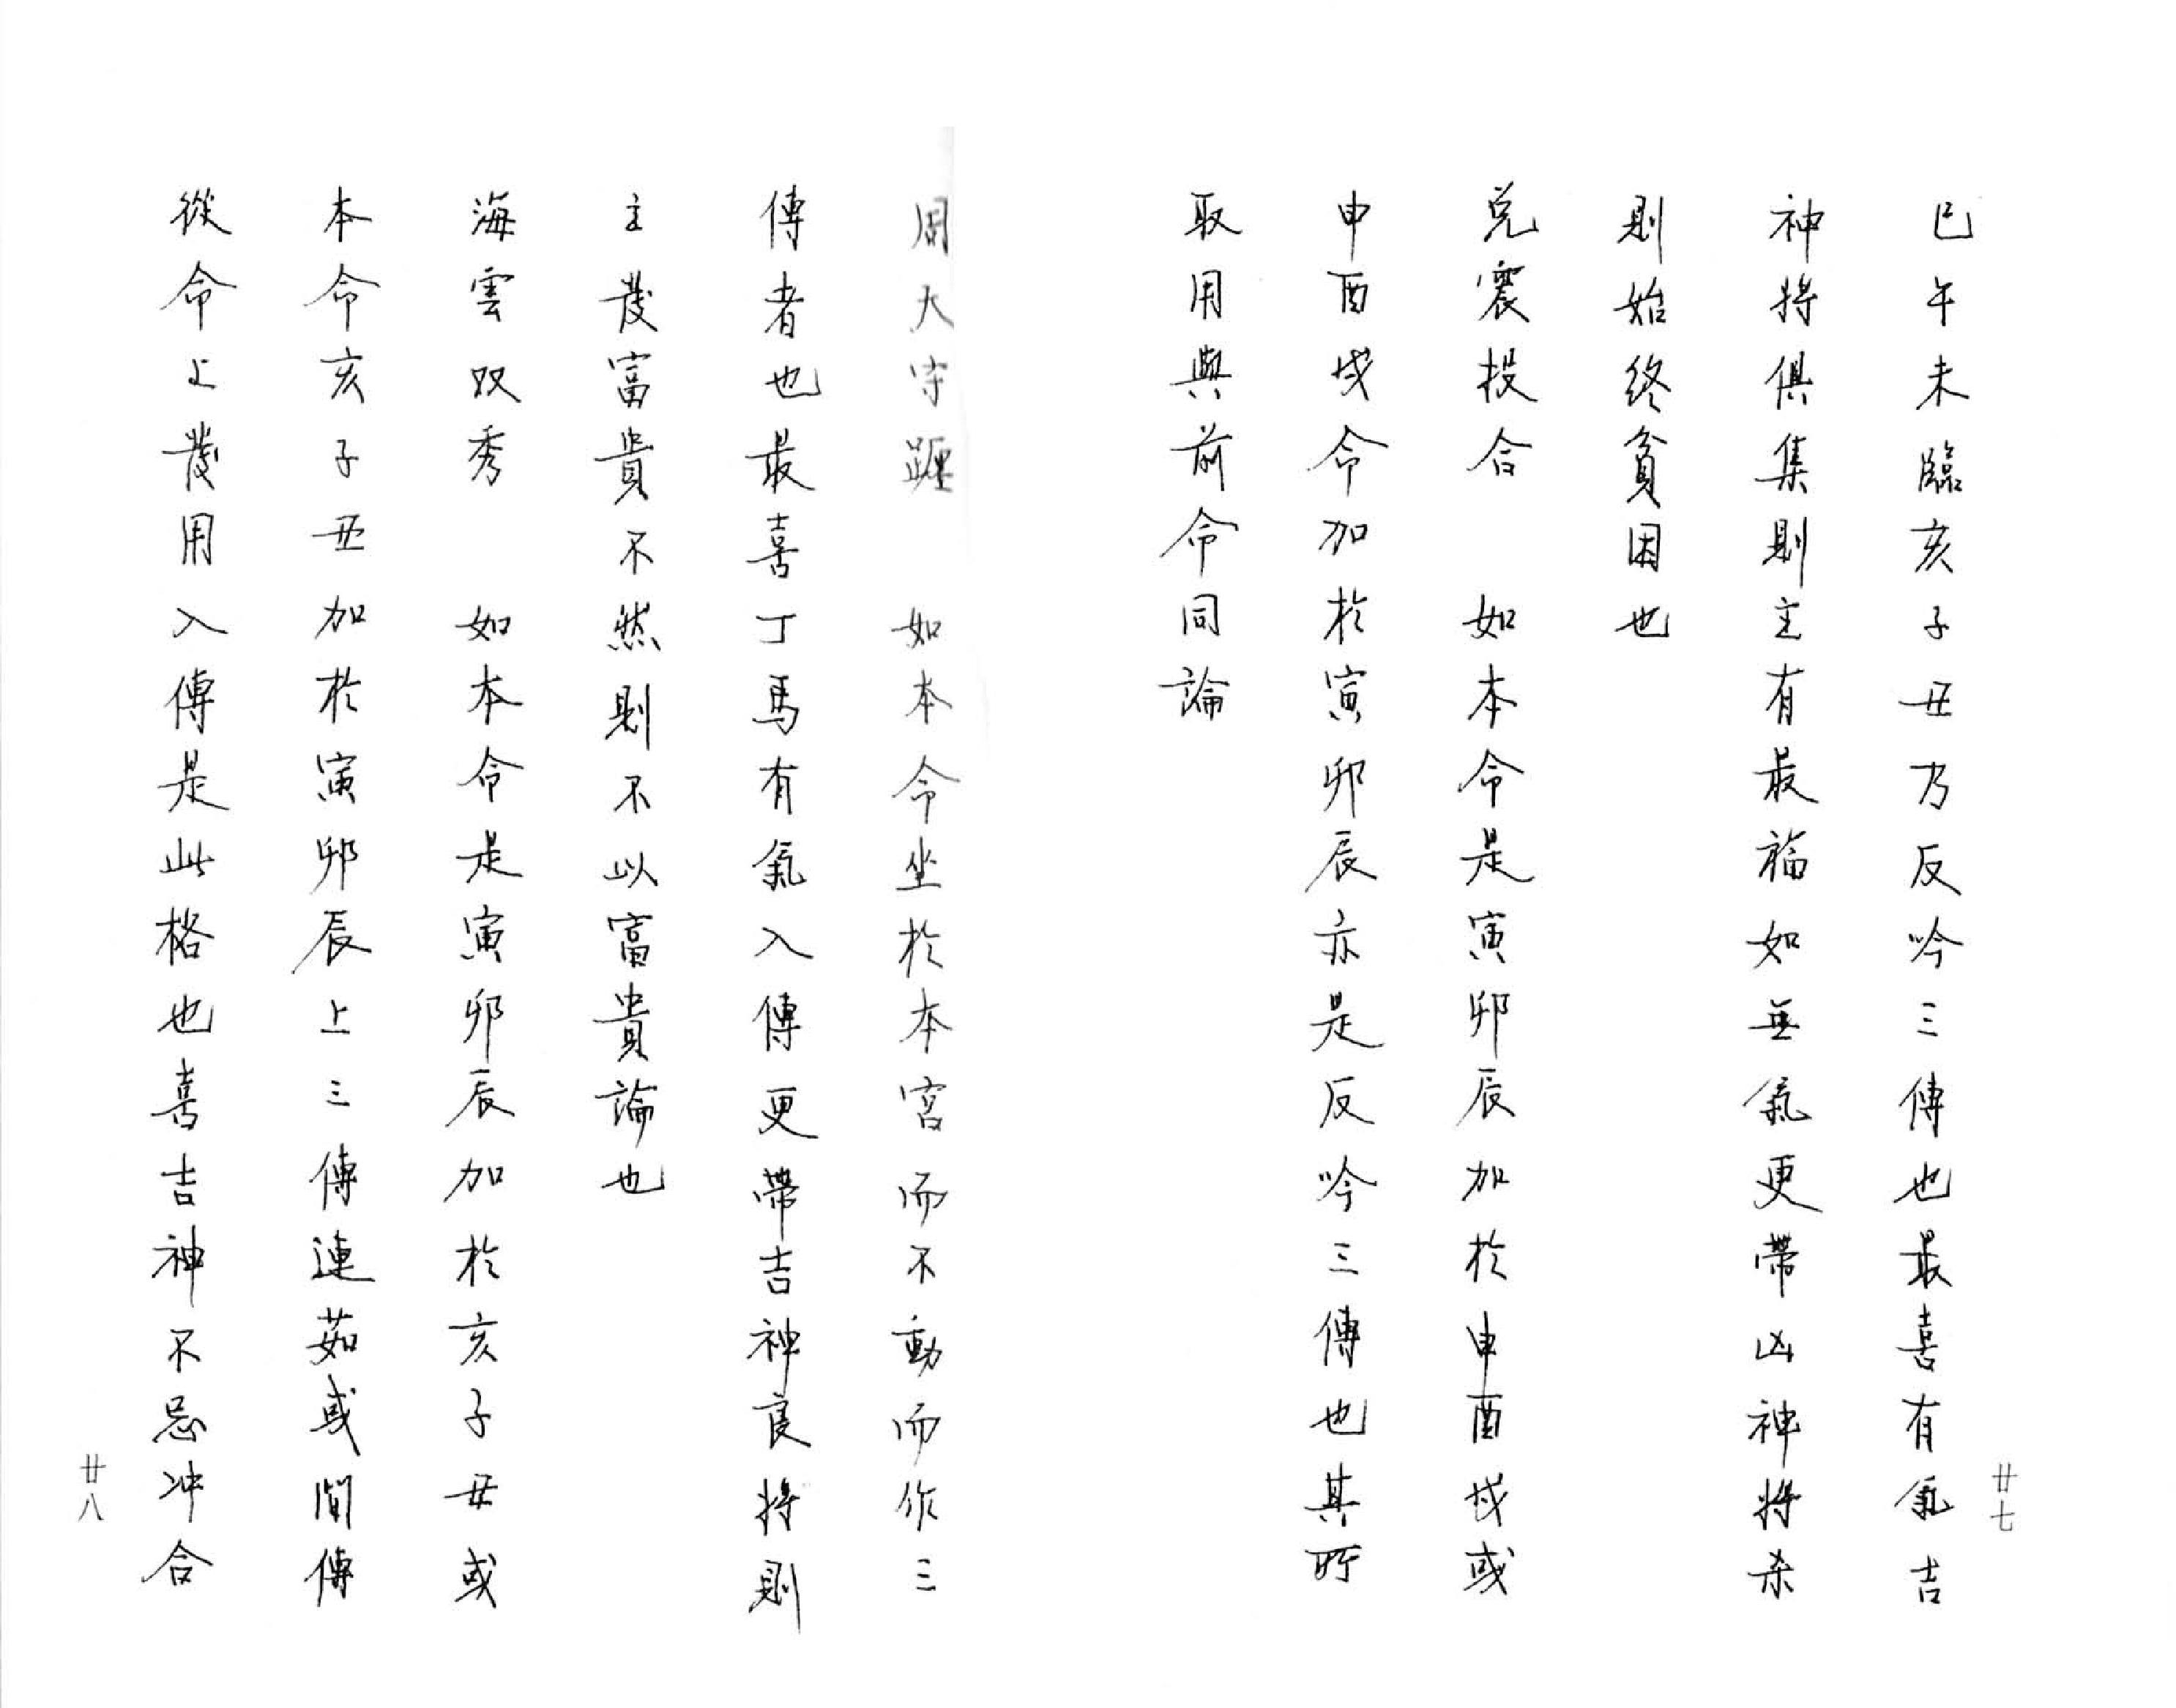 巳午未臨亥子丑乃反吟三傳也最喜有氣吉
神將俱集則主有最福如無氣更帶凶神將杀
則始終貧困也
兌震投合　如本命是寅卯辰加於申酉戌或
申酉戌命加於寅卯辰亦是反吟三傳也其所
取用與前命同論
廿七
周天守躔　如本命坐於本宮而不動而作三
傳者也最喜丁馬有氣入傳更帶吉神良將則
主發富貴不然則不以富貴論也
海雲双秀　如本命是寅卯辰加於亥子丑或
本命亥子丑加於寅卯辰上三傳連茹或間傳
從命上發用入傳是此格也喜吉神不忌冲合
廿八